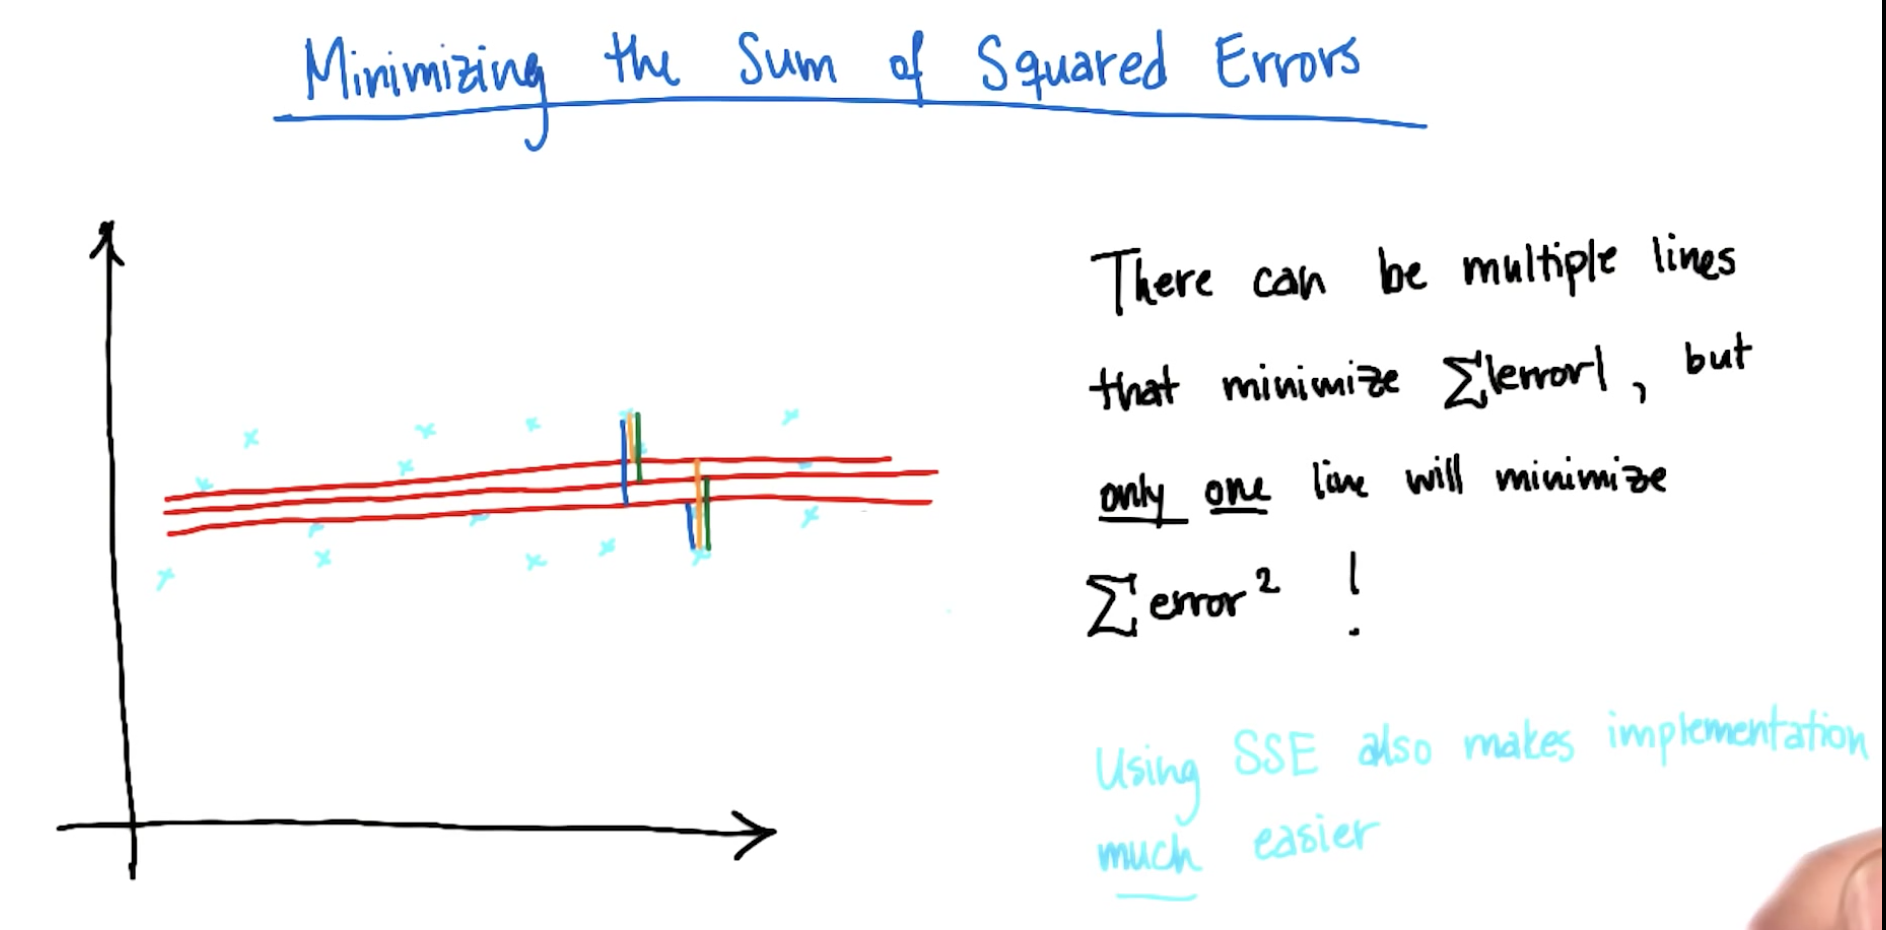 Minimizing the Sum of Squared Errors
There can be multiple lines
that minimize ∑|error|, but
only one line will minimize
∑error² !
Using SSE also makes implementation
much easier